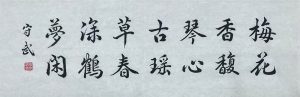 梅花
香馥
琴心
古瑶
草春
深鶴
夢闲
守武